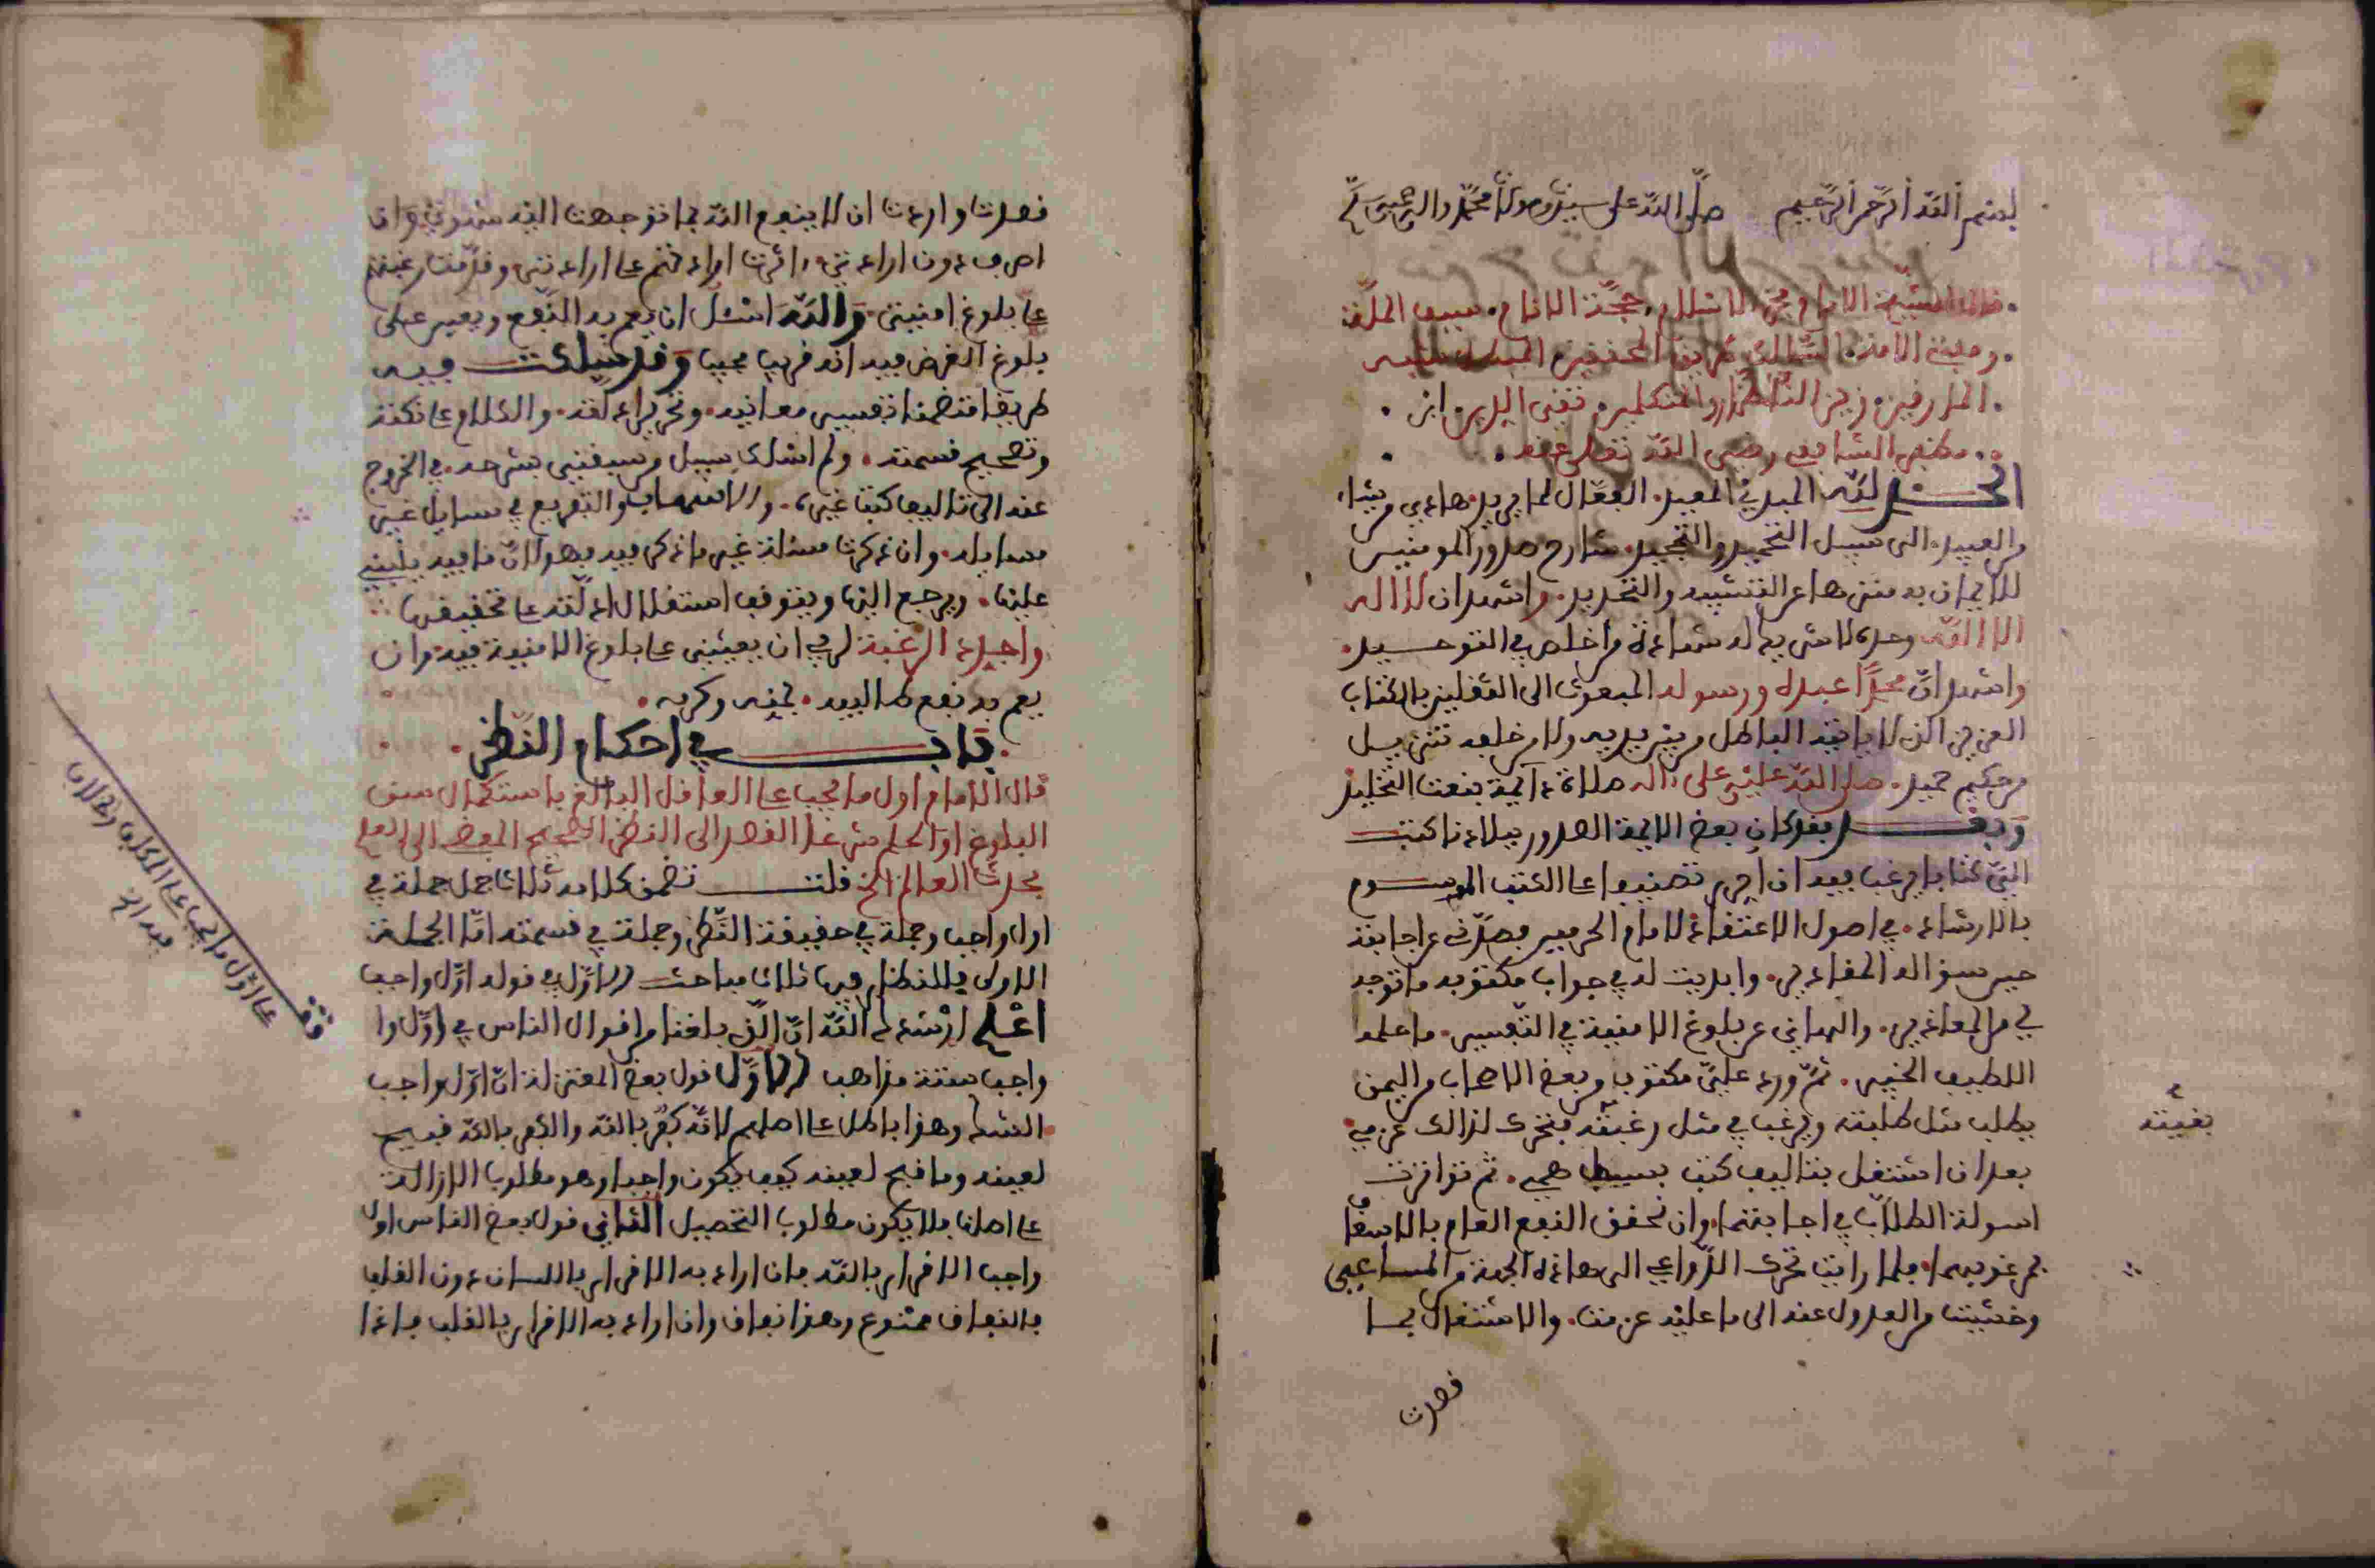 بسم الله الرحمن الرحيم صلى الله على سيدنا ومولانا محمد وآله وصحبه وسلم
قال الشيخ الامام عز الاسلام حجة الانام سيف الملة
ومعين الامة السالك طريق المحققين المبطل شبه
المارقين زين النظار والمتكلمين تقي الدين ابن
مظفر الشافعي رضي الله تعالى عنه
الحمد لله المبدئ المعيد الفعال لما يريد هادي من يشاء
من العبيد الى سبيل التحميد والتمجيد شارح صدور المومنين
للايمان به منزها عن التشبيه والتحديد واشهد ان لا اله
الا الله وحده لا شريك له شهادة من اخلص في التوحيد
واشهد ان محمدا عبده ورسوله المبعوث الى الثقلين بالكتاب
العزيز الذي لا ياتيه الباطل من بين يديه ولا من خلفه تنزيل
من حكيم حميد صلى الله عليه وعلى ءاله صلاة دائمة بنعت التخليد
وبعد فقد كان بعض الايمة الصدور ببلادنا كتب
الي كتابا يرغب فيه ان احرر تصنيفا على الكتب الموسوم
بالارشاد في اصول الاعتقاد لامام الحرمين فصدني عن اجابته
حين سؤاله المقادير وابديت له في جواب مكتوبه ما توجه
لي من المعاذير والهاني عن بلوغ الامنية في التفسير ما علمه
اللطيف الخبير ثم ورد علي مكتوب من بعض الاصحاب من اليمن
يطلب مثل طلبته ويرغب في مثل رغبته فتحرك لذالك عزمي
بغيته
بعد ان اشتغل بتاليف كتب بسيط همي ثم تواترت
اسولة الطلاب في اجابتهما وان تحقق النفع العام بالاسعاف
بمرغوبهما فلما رايت تحرك الدواعي الى هاذه الجهة من المساعي
وخشيت من العدول عنه الى ما عليه عزمت والاشتغال بما
قصدت
قصدت واردت ان لا ينفع الله بما توجهت اليه منيتي وان
اصرف دون ارادتي ءاثرت ارادتهم على ارادتي وقدمت رغبتهم
على بلوغ امنيتي والله اسئل ان يعم به النفع ويعين على
بلوغ الغرض فيه انه قريب مجيب وقد سلكت فيه
طريقا متضمنا تفسير معانيه وتحرير ادلته والكلام على نكته
وتصحيح قسمته ولم اسلك سبيل من سبقني بشرحه في الخروج
عنه الى تاليف كتب غيره والاسهاب والتفريع في مسايل غير
مسايله وان ذكرت مسئلة غير ما ذكر فيه فهو لان ما فيه يبتني
عليها ويرجع اليها ويتوقف استقلال ادلته على تحقيقها
واجدد الرغبة لربي ان يعينني على بلوغ الامنية فيه وان
يعم به نفع طالبيه بمنه وكرمه
باب في احكام النظر
قال الامام اول ما يجب على العاقل البالغ باستكمال سن
البلوغ او الحلم شرعا القصد الى النظر الصحيح المفضي الى العلم
بحدث العالم الخ قلت تضمن كلامه ثلاث جمل جملة في
اول واجب وجملة في حقيقة النظر وجملة في قسمته اما الجملة
الاولى فللنظر فيها ثلاث مباحث الاول في قوله اول واجب
اعلم ارشدك الله ان الذي بلغنا من اقوال الناس في اول وا
واجب ستة مذاهب الاول قول بعض المعتزلة ان اول واجب
الشك وهذا باطل على اصلهم لانه كفر بالله والكفر بالله قبيح
لعينه وما قبح لعينه كيف يكون واجبا وهو مطلوب الازالة
على اصلنا فلا يكون مطلوب التحصيل الثاني قول بعض الناس اول
واجب الاقرار بالله فان اراد به الاقرار باللسان دون القلب
فالنفاق ممنوع وهذا نفاق وان اراد به الاقرار بالقلب فاذا
قف
على اول ما يجب على المكلف والخلاف
فيه الخ